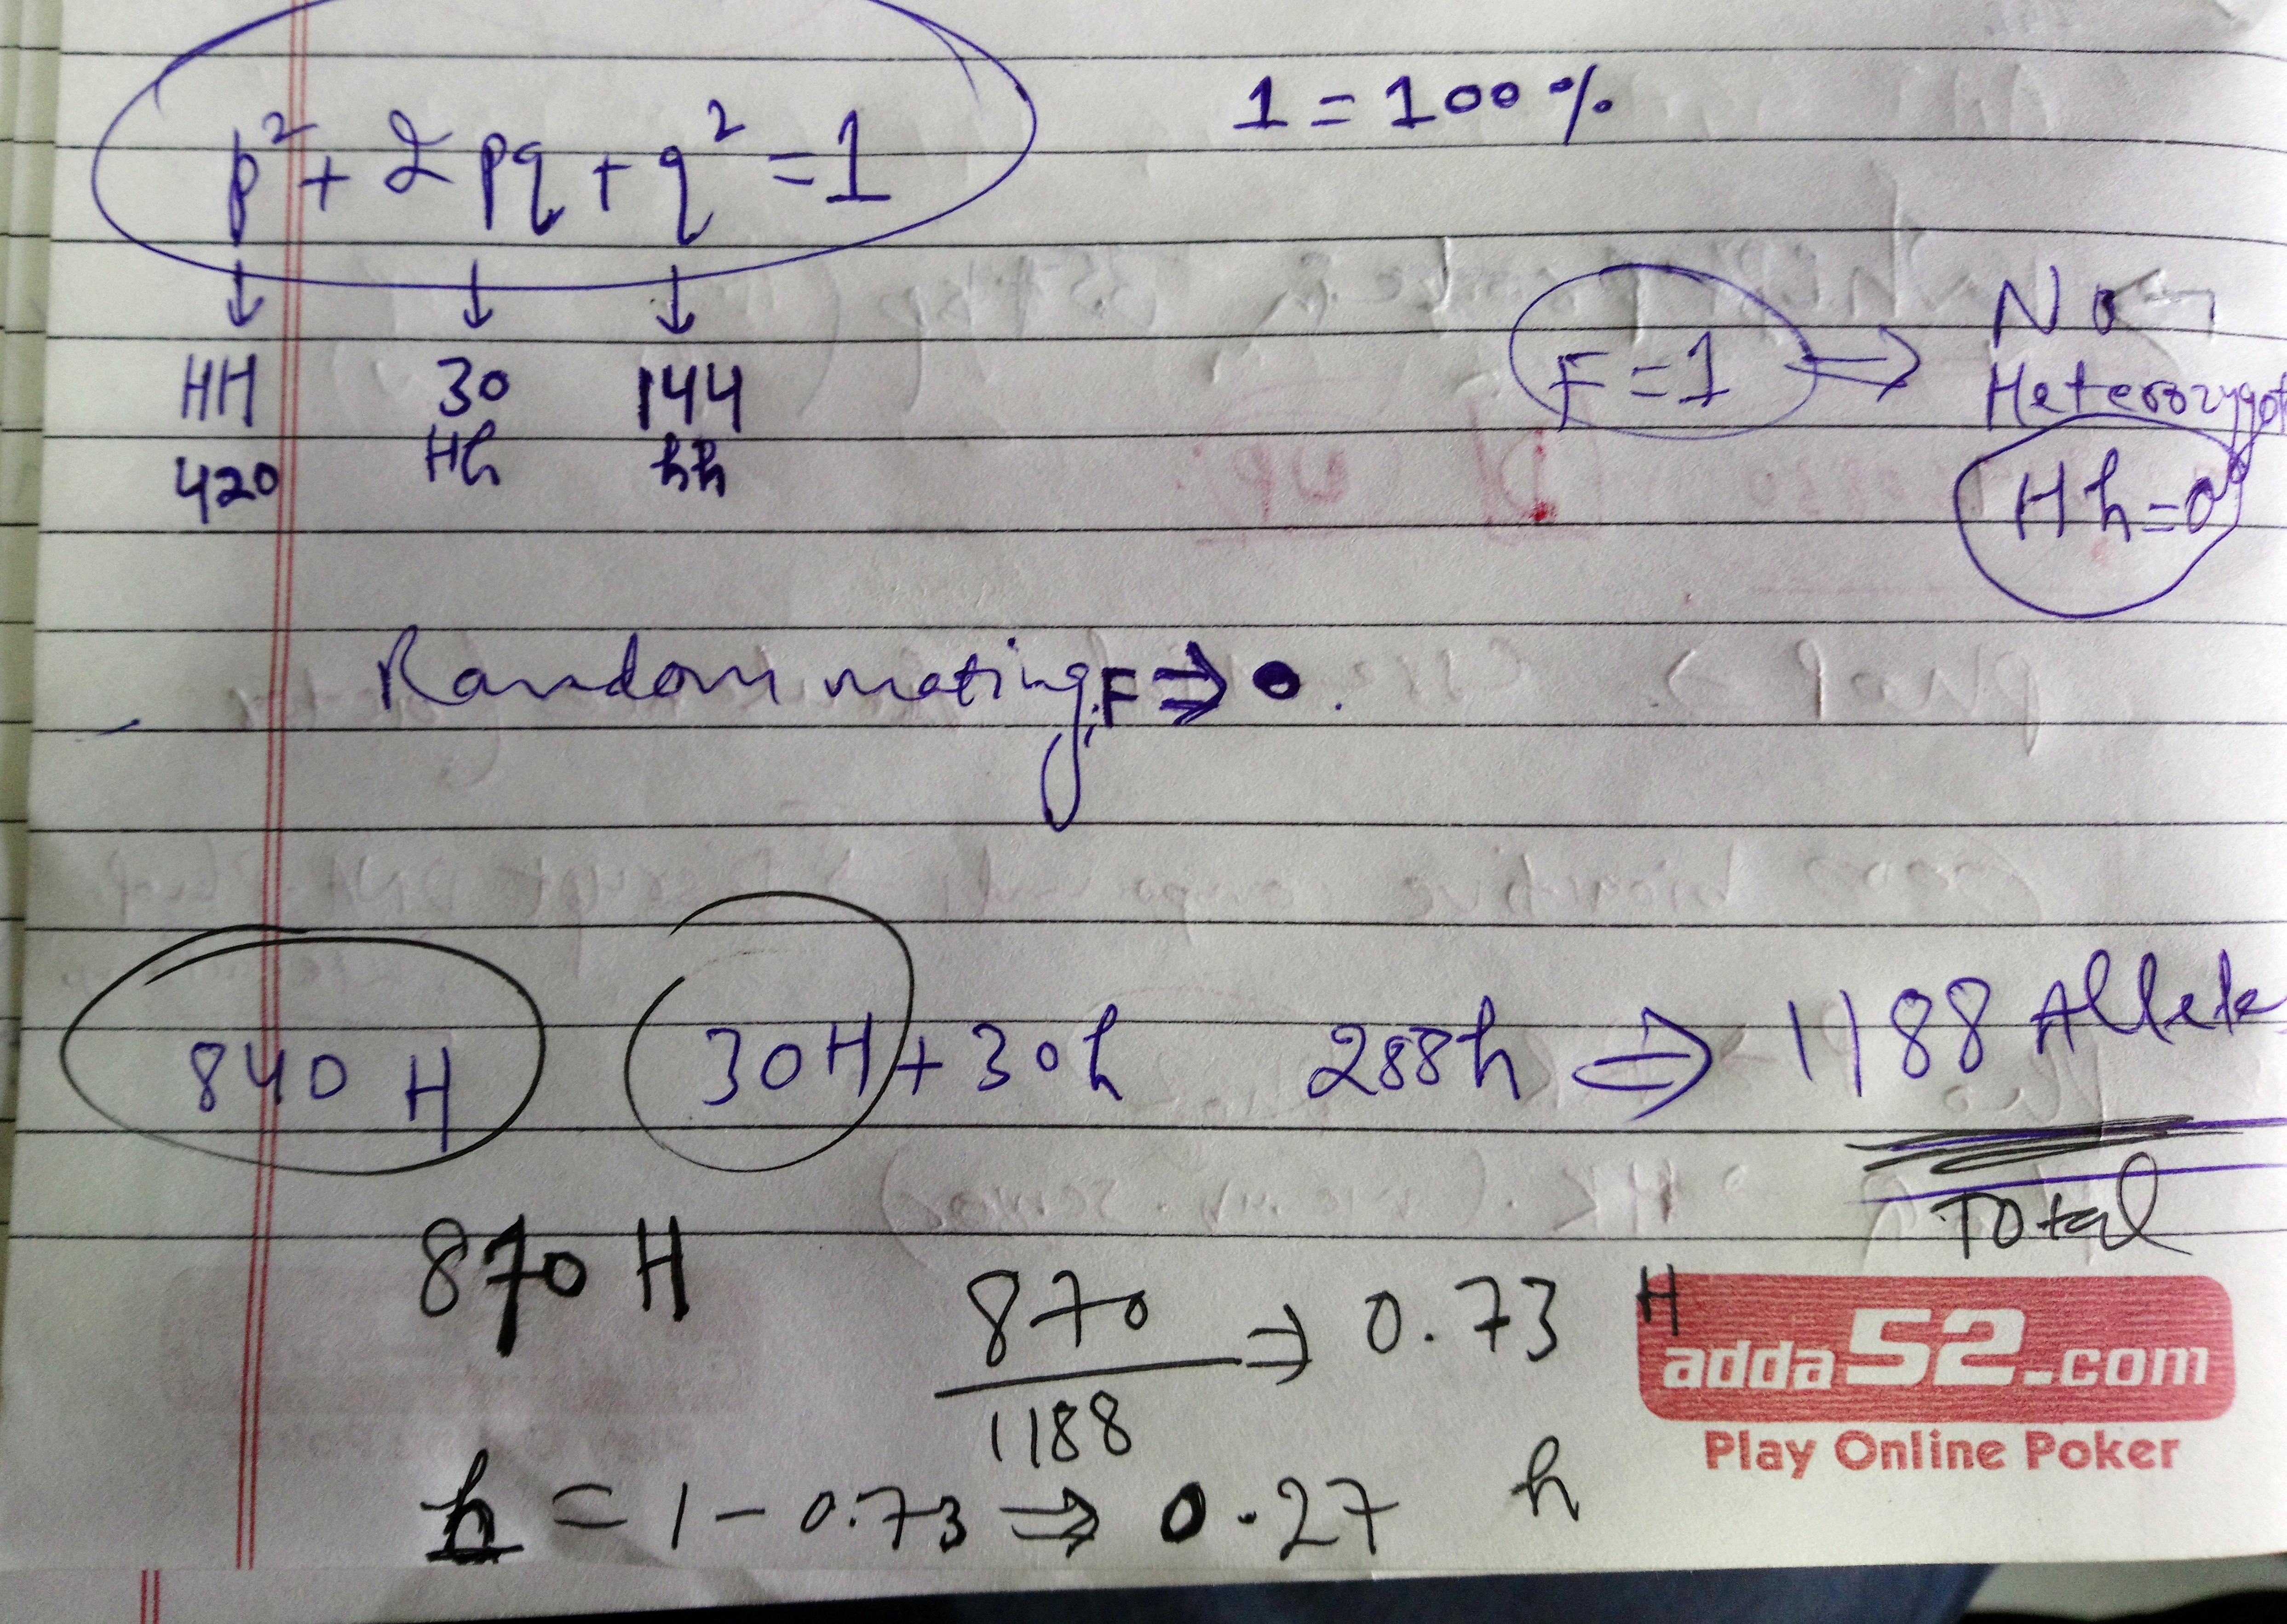 p² + 2pq + q² = 1
1 = 100%
↓ ↓ ↓
HH 30 144
420 Hh hh
F = 1 ⇒ No
Heterozygot
Hh = 0
Random mating, F ⇒ 0.
840 H 30H + 30h 288h ⇒ 1188 Allele
Total
870 H
870 / 1188 ⇒ 0.73 H
h = 1 - 0.73 ⇒ 0.27 h
adda52.com
Play Online Poker